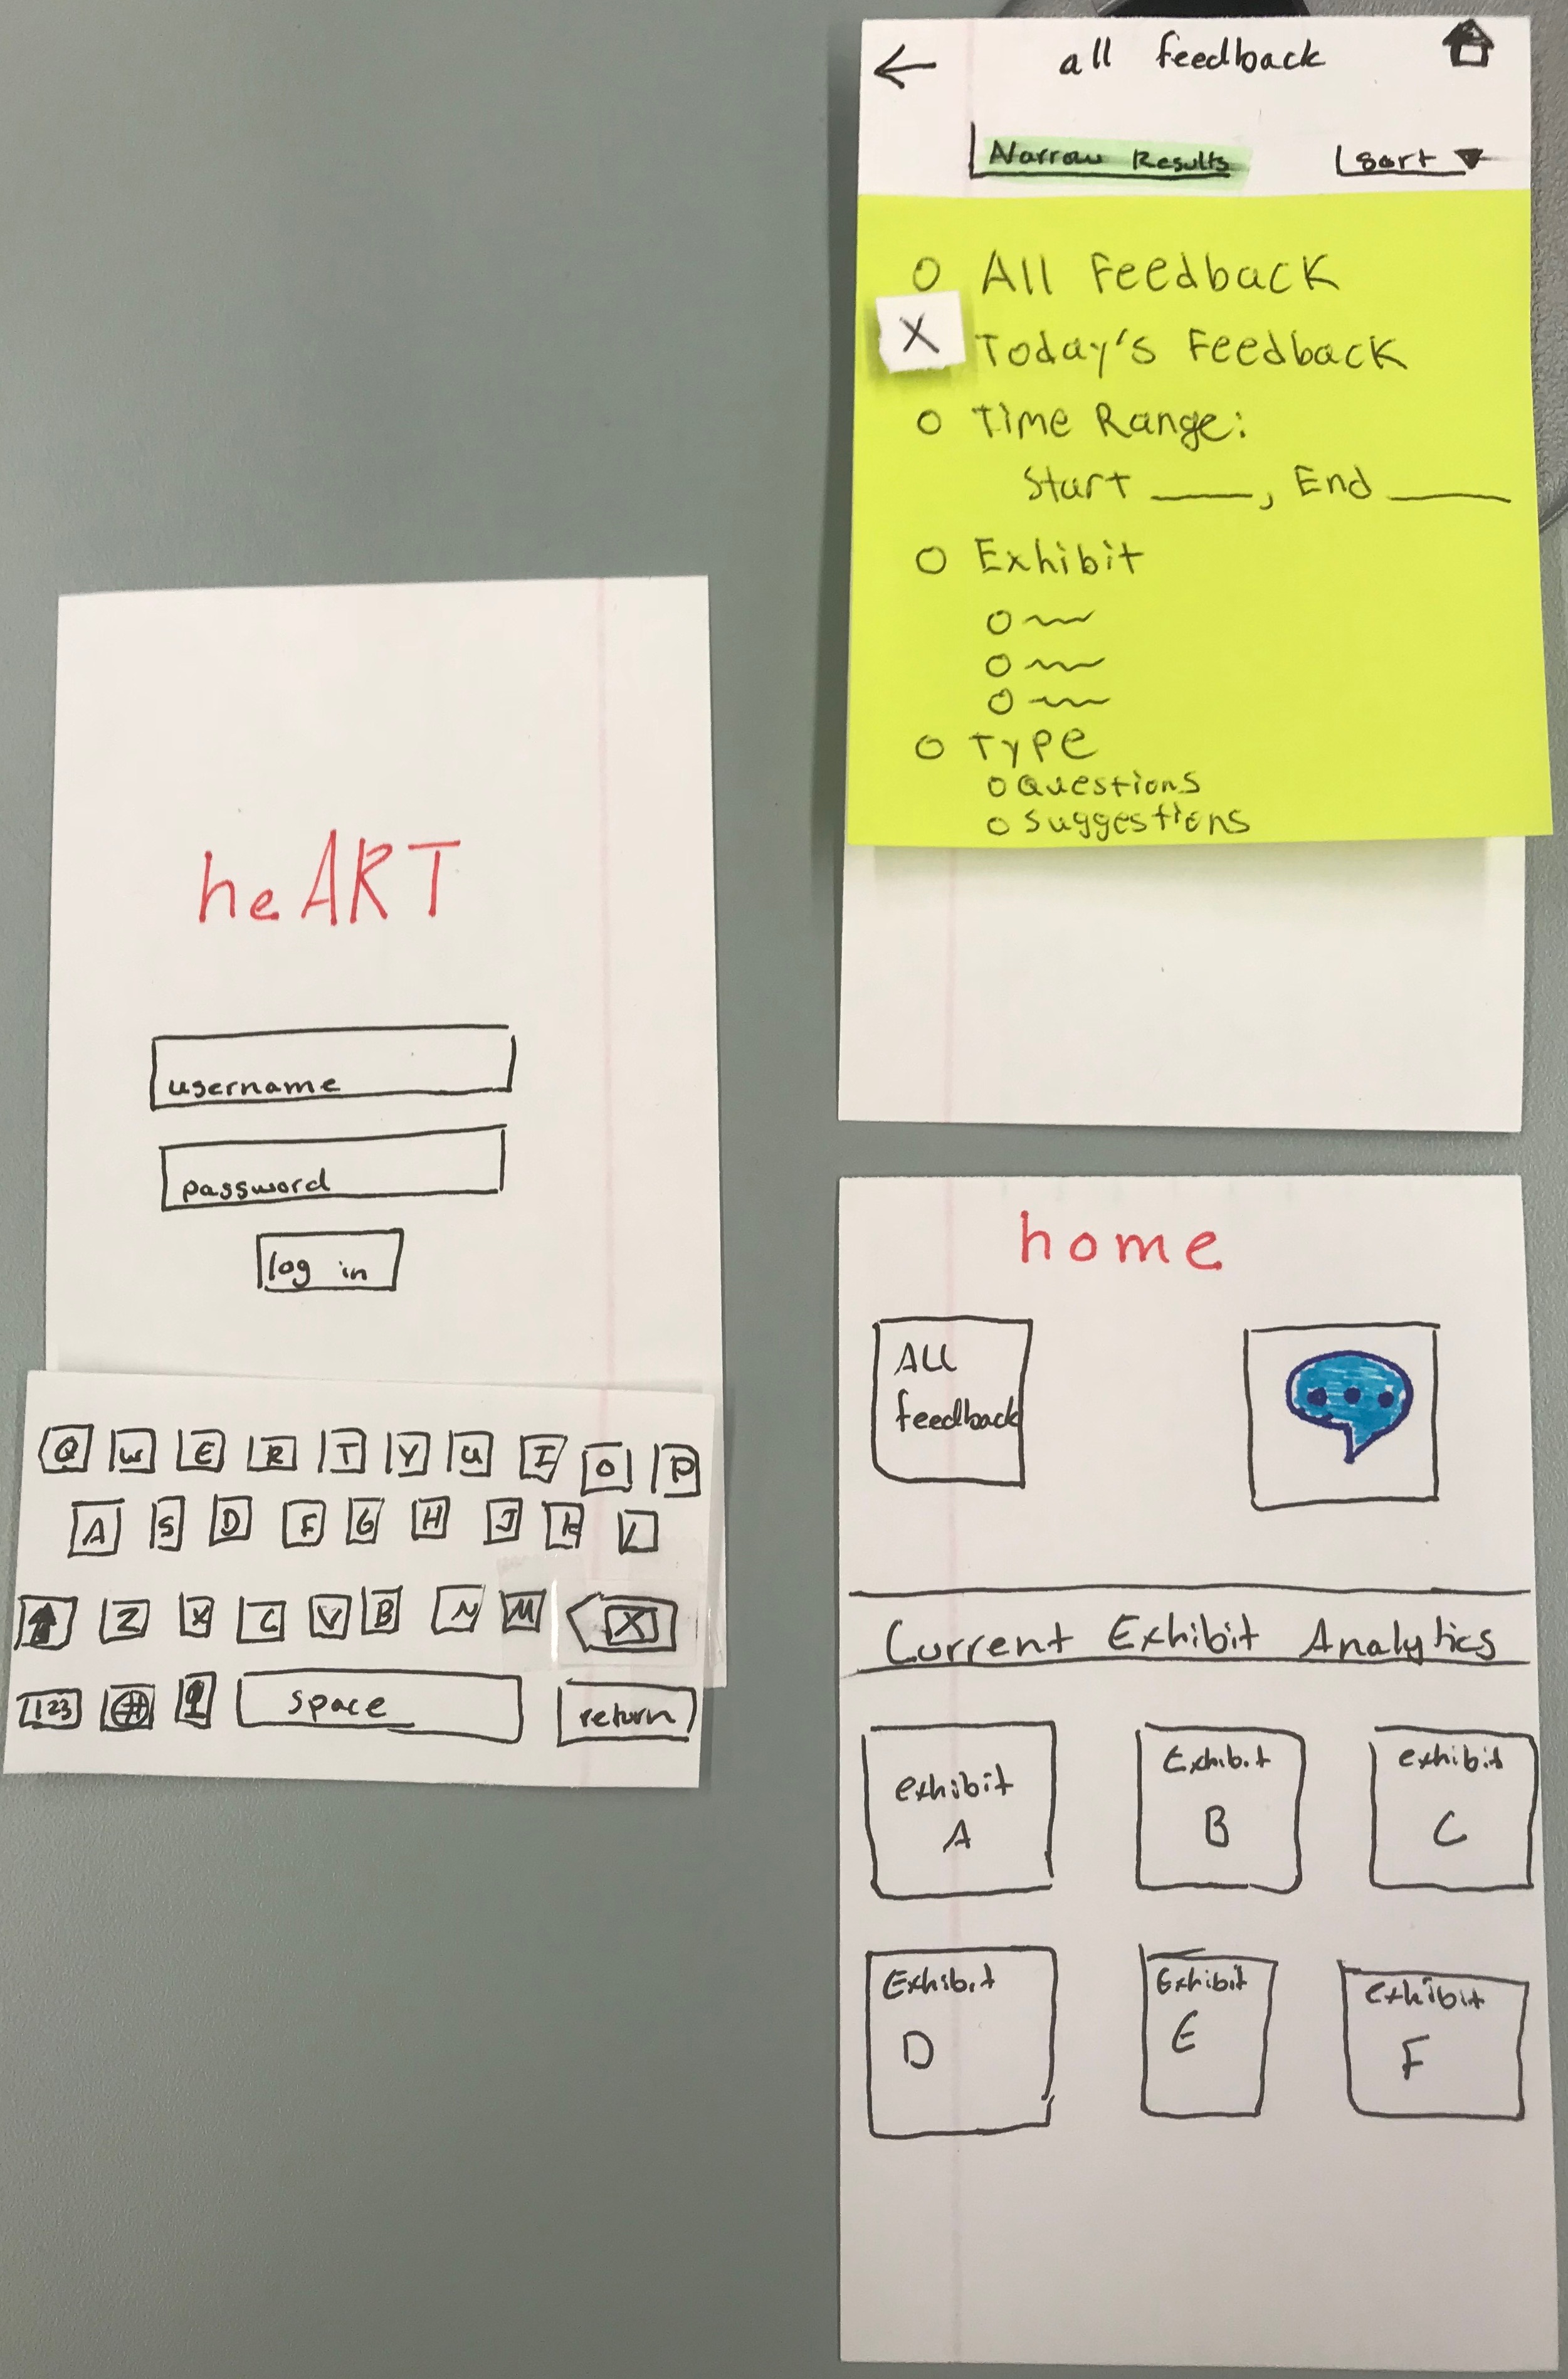 heART
username
password
log in
Q W E R T Y U I O P
A S D F G H J K L
Z X C V B N M X
123 space return
all feedback
Narrow Results sort
All Feedback
X Today's Feedback
Time Range:
Start ____, End ____
Exhibit
Type
Questions
Suggestions
home
All
feedback
Current Exhibit Analytics
exhibit
A
Exhibit
B
exhibit
C
Exhibit
D
Exhibit
E
exhibit
F